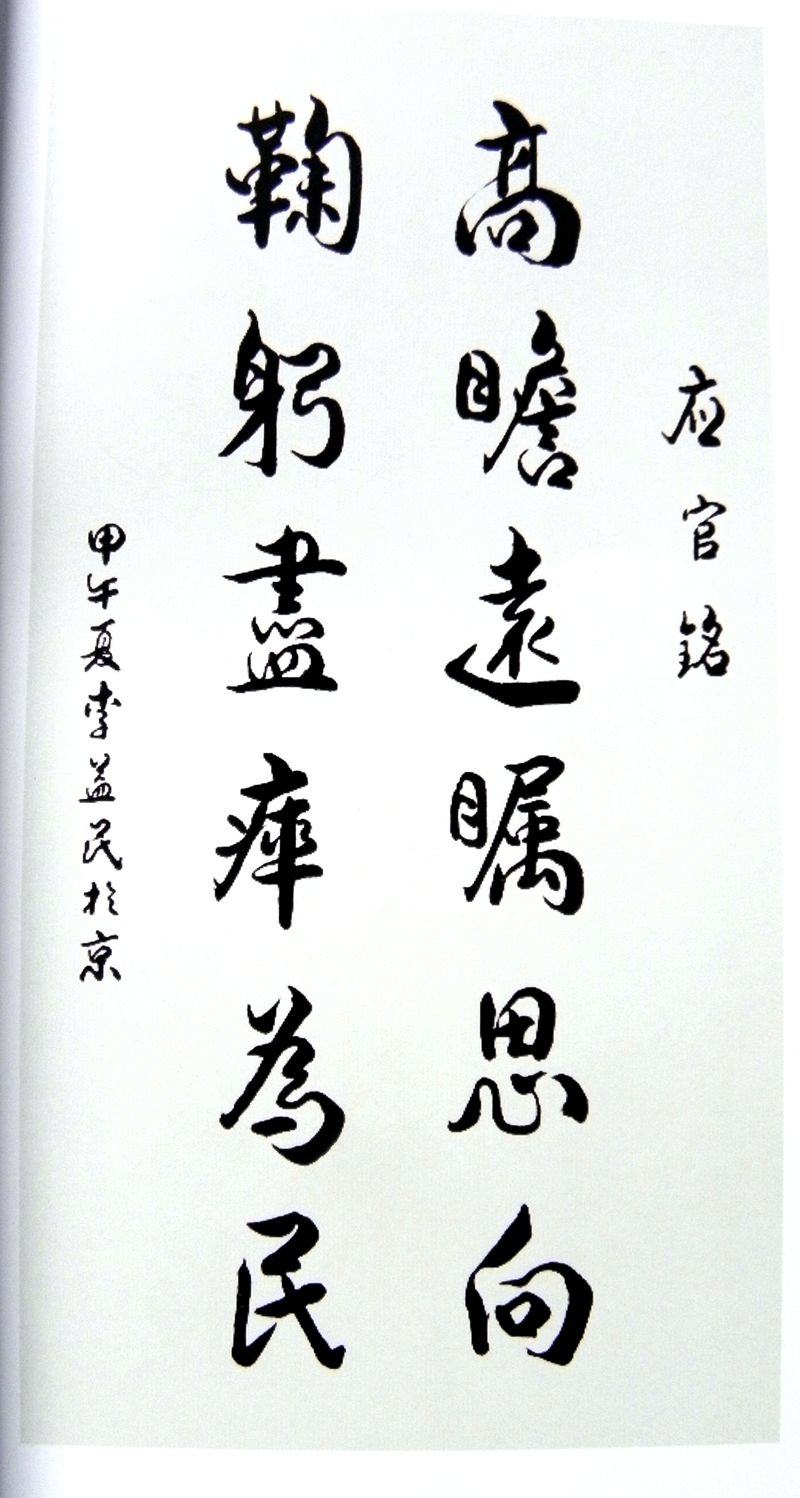 应官铭
高瞻遠瞩思向
鞠躬盡瘁為民
甲午夏李益民於京